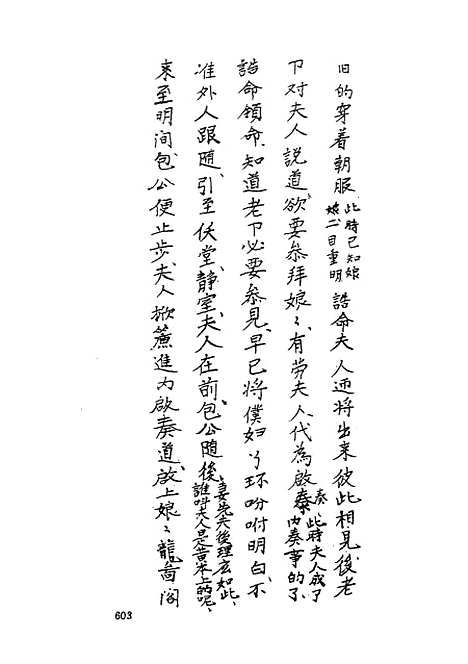 旧的穿着朝服、此時已知娘娘二目重明、誥命夫人迎将出来彼此相見後老
卩对夫人説道、欲要叅拜娘〻、有劳夫人代為啟奏、此時夫人成了内奏事的了、
誥命領命、知道老卩必要叅見、早已将僕妇丫环吩咐明白、不
准外人跟随、引至伏堂静室、夫人在前、包公随後、妻先夫後理应如此、誰呌夫人是昔本上的呢、
来至明间、包公便止步、夫人掀簾進内啟奏道、啟上娘〻、龍啚阁
603